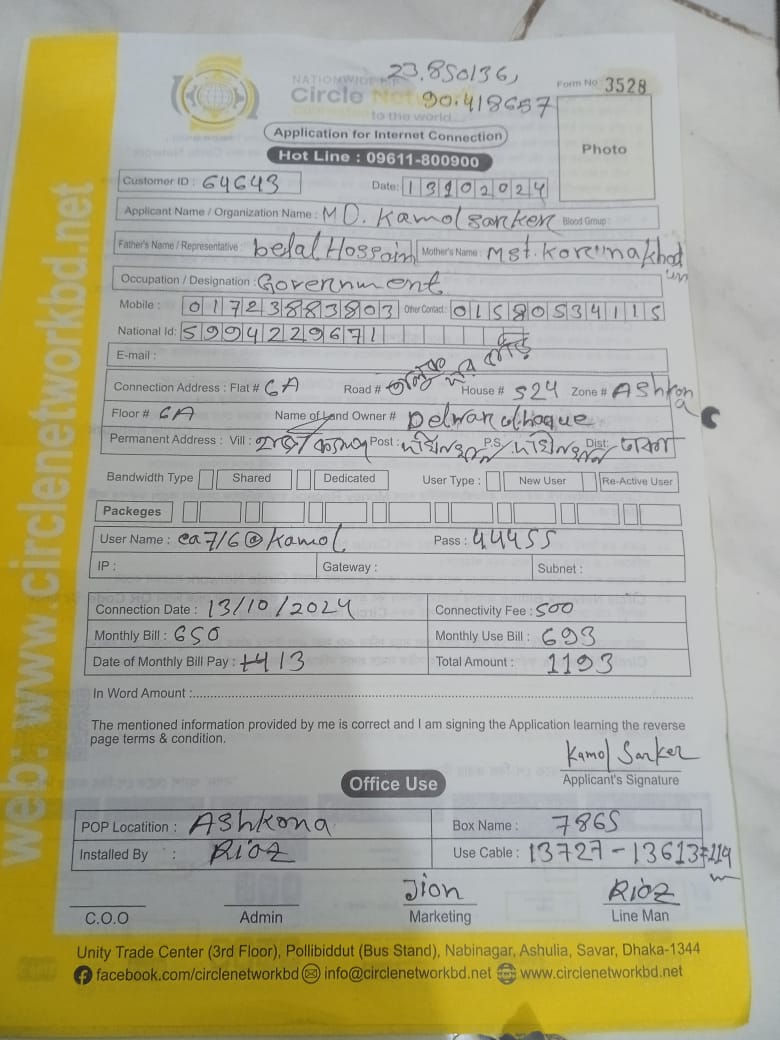 23.850136,
NATIONWIDE
Circle Network
90.418657
to the world...
Form No 3528
Application for Internet Connection
Hot Line : 09611-800900
Photo
Customer ID : 64643 Date: 13102024
Applicant Name / Organization Name : MD. Kamol sarker Blood Group :
Father's Name / Representative : belal Hossain Mother's Name : Mst. Korunakhatun
Occupation / Designation : Government
Mobile : 01723883803 Other Contact : 01580534115
National Id: 5994229671
E-mail :
Connection Address : Flat # 6A Road # House # 524 Zone # Ashkona
Floor # 6A Name of Land Owner # Delwar hoque
Permanent Address : Vill : Post : দক্ষিনখান P.S. : দক্ষিনখান Dist: ঢাকা
Bandwidth Type Shared Dedicated User Type : New User Re-Active User
Packeges
User Name : ca716@kamol Pass : 44455
IP : Gateway : Subnet :
Connection Date : 13/10/2024 Connectivity Fee : 500
Monthly Bill : 650 Monthly Use Bill : 693
Date of Monthly Bill Pay : 13 Total Amount : 1193
In Word Amount :
The mentioned information provided by me is correct and I am signing the Application learning the reverse
page terms & condition.
Kamol Sarker
Applicant's Signature
Office Use
POP Locatition : Ashkona Box Name : 7865
Installed By : Rioz Use Cable : 13727-13613=114
Jion Rioz
C.O.O Admin Marketing Line Man
Unity Trade Center (3rd Floor), Pollibiddut (Bus Stand), Nabinagar, Ashulia, Savar, Dhaka-1344
facebook.com/circlenetworkbd info@circlenetworkbd.net www.circlenetworkbd.net
web: www.circlenetworkbd.net